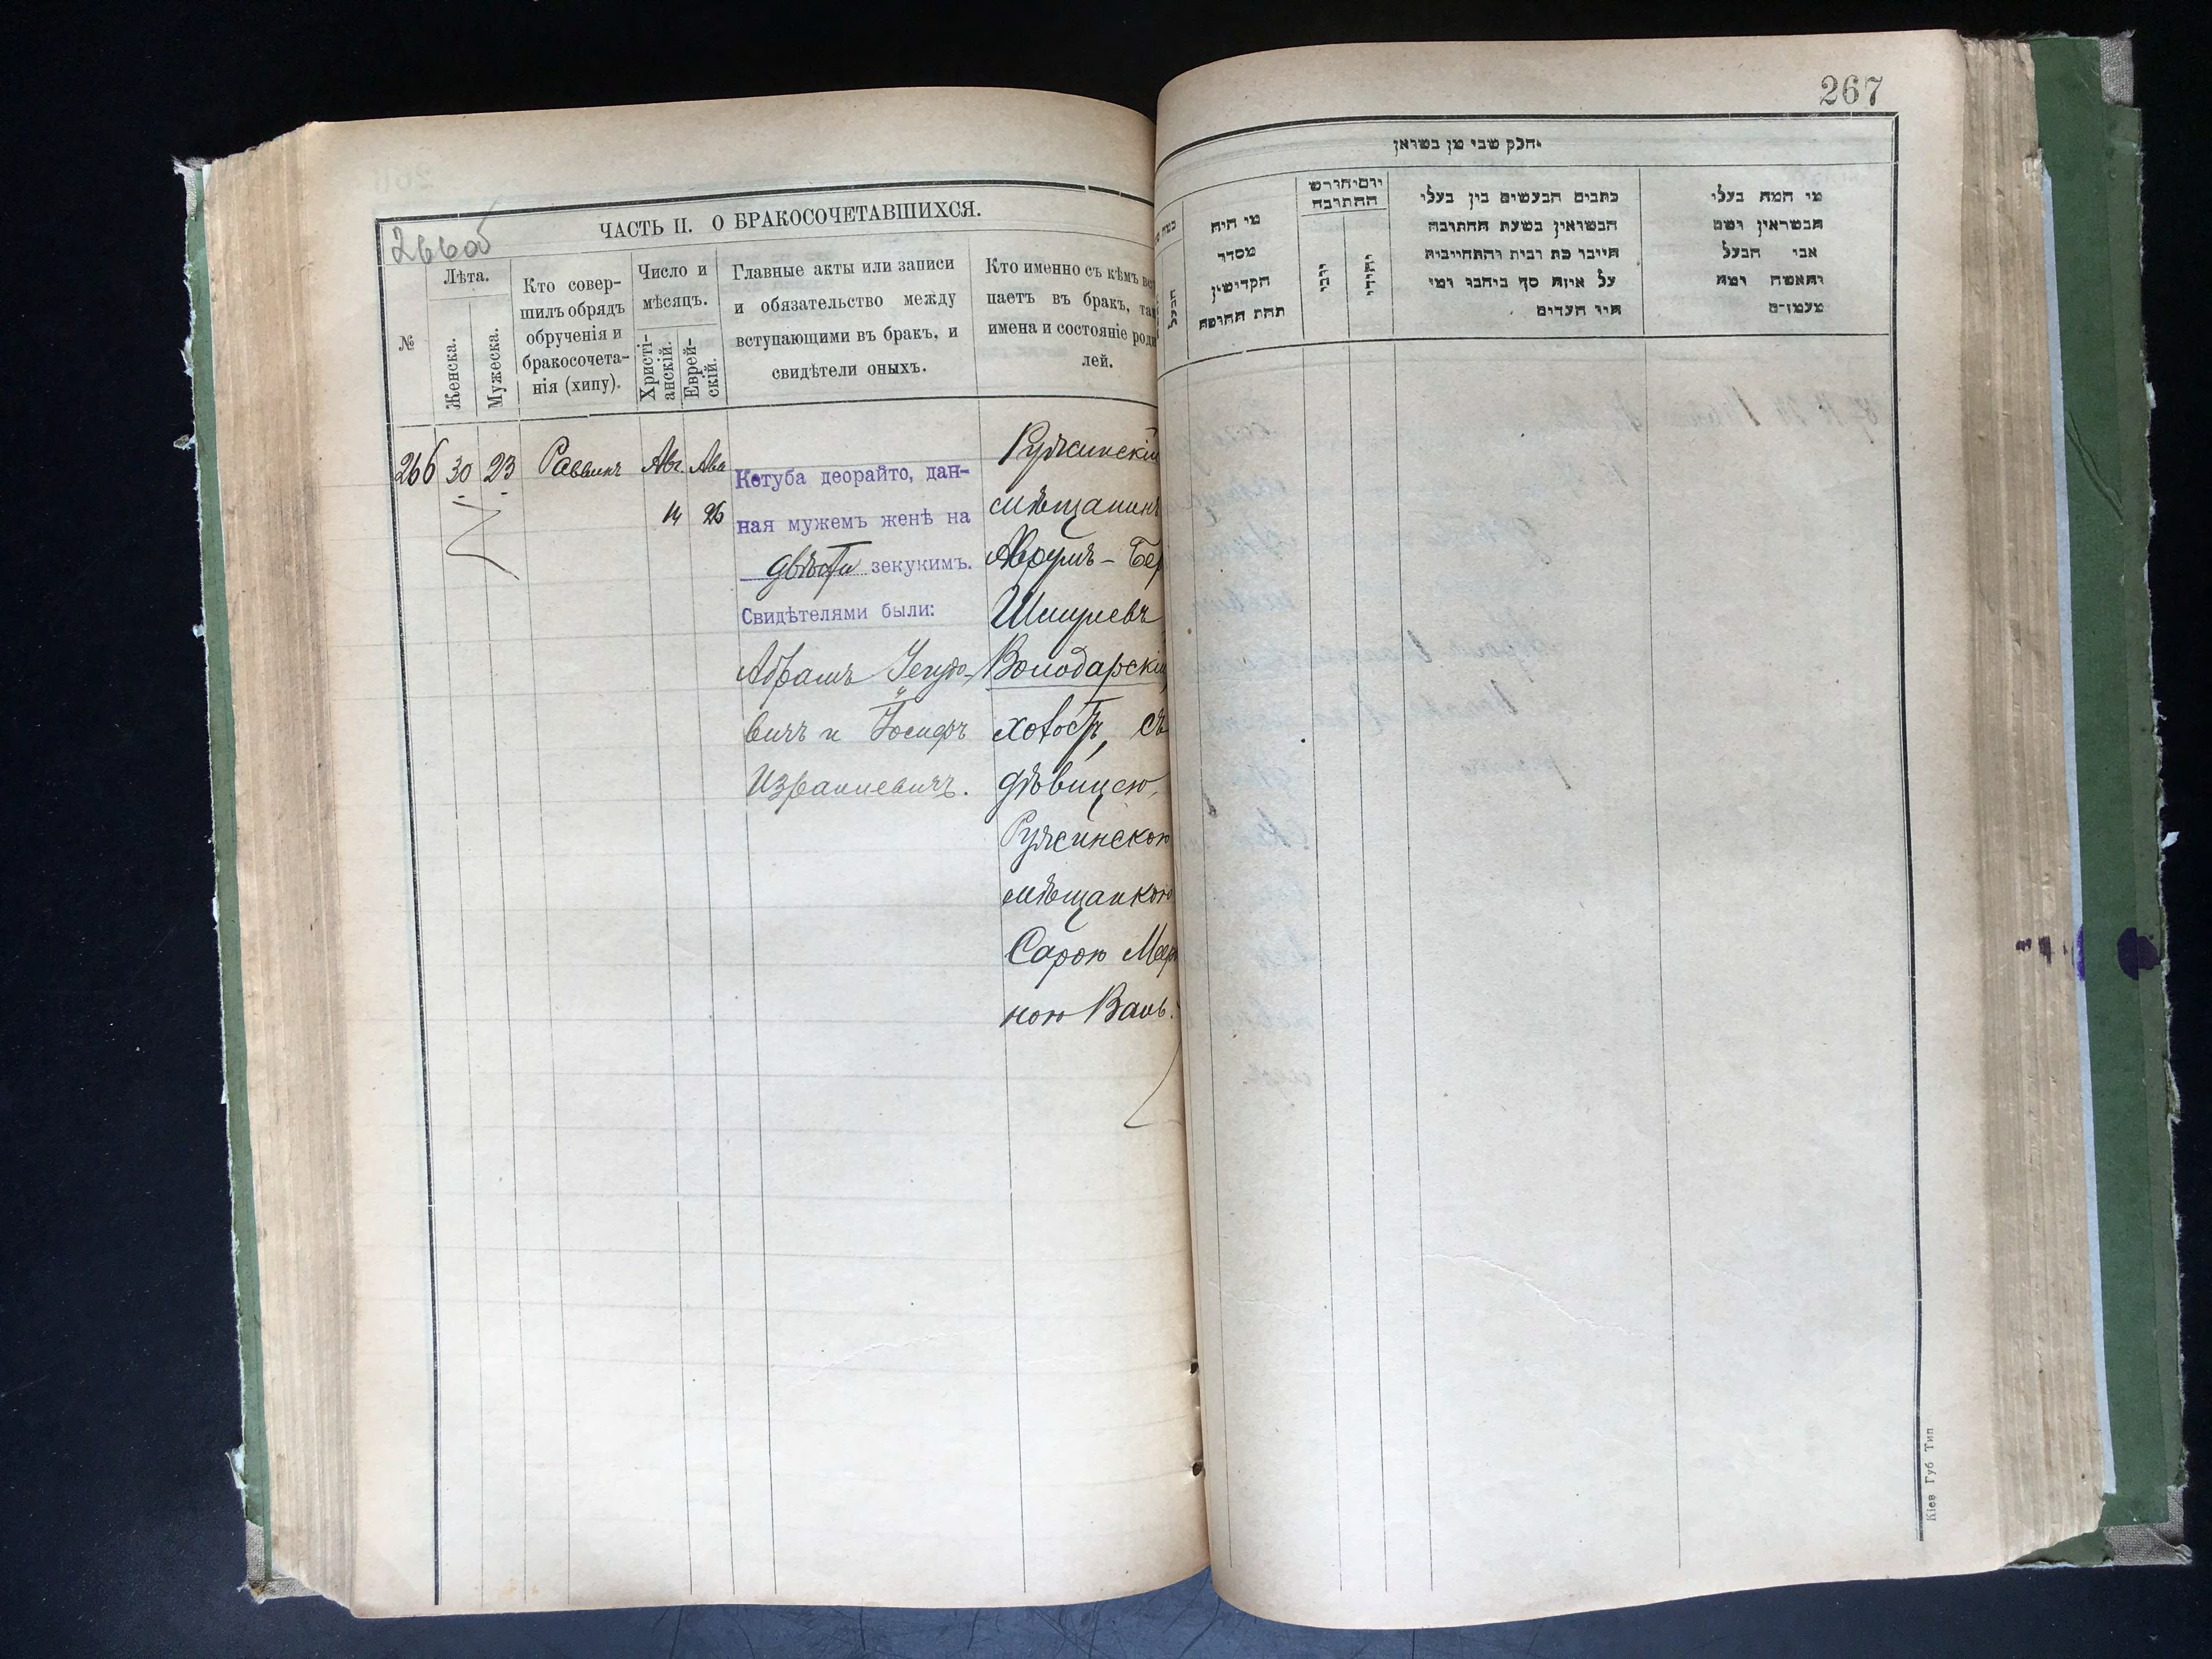 266об
ЧАСТЬ II. О БРАКОСОЧЕТАВШИХСЯ.
№
Лѣта.
Женска.
Мужеска.
Кто совер-
шилъ обрядъ
обрученія и
бракосочета-
нія (хипу).
Число и
мѣсяцъ.
Христі-
анскій.
Еврей-
скій.
Главные акты или записи
и обязательство между
вступающими въ бракъ, и
свидѣтели оныхъ.
Кто именно съ кѣмъ всту
паетъ въ бракъ, так
имена и состояніе роди
лей.
266 30 23 Раввинъ Авг Ава
14 26
Кетуба деорайто, дан-
ная мужемъ женѣ на
двѣсти зекукимъ.
Свидѣтелями были:
Абрамъ Іегудо-
вичъ и Іосифъ
Израилевичъ.
Ружинскій
мѣщанинъ
Аврумъ-Бер
Шмулевъ
Володарскій,
холостъ, съ
дѣвицею,
Ружинскою
мѣщанкою
Сарою Меер
ною Валь.
267
חלק שני מן נשואין
מי היה
מסדר
הקדישין
תחת החופה
יום וחודש
החתונה
יוני
יהודי
כתבים הנעשים בין בעלי
הנשואין בשעת החתונה
חייבו כת רבית והתחייבות
על איזה סך ביחבו ומי
היו העדים
מי המה בעלי
הנשואין ושם
אבי הבעל
והאשה ומה
מעמדם
Кіев Губ Тип